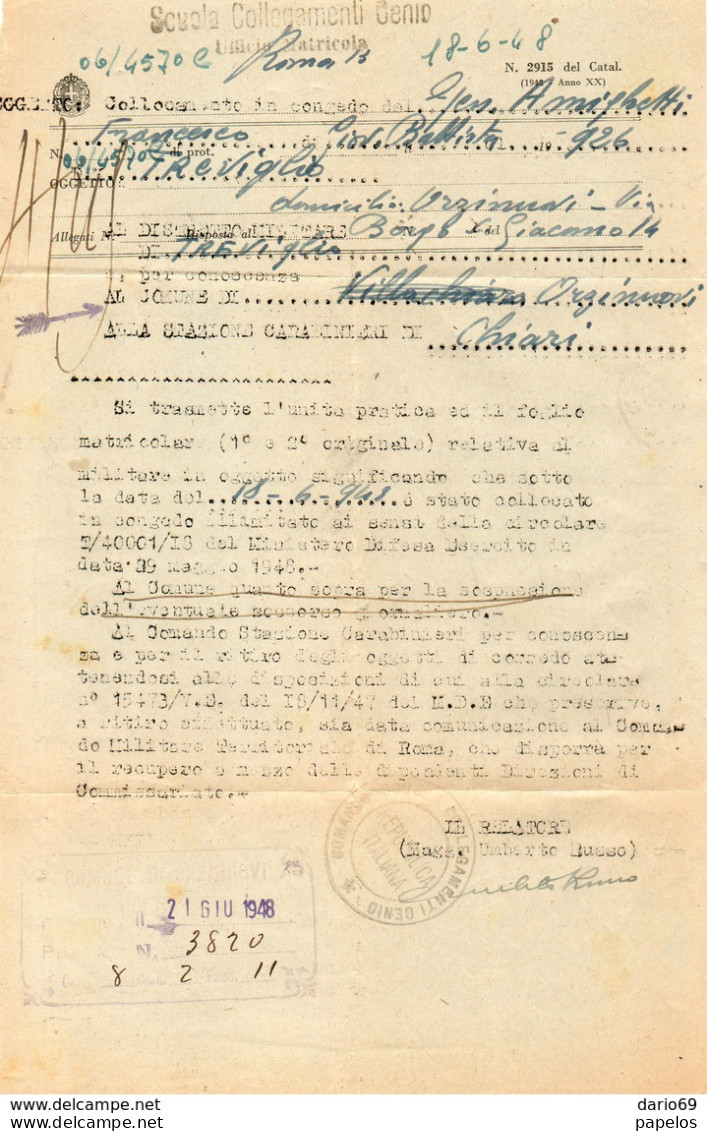 Scuola Collegamenti Genio
Ufficio Matricola
06/4570 C Roma lì 18-6-48
N. 2915 del Catal.
(1942 Anno XX)
OGGETTO: Collocamento in congedo del Amighetti
Francesco di Giov. Battista 926
N. 06/4570C di prot.
TREViglio
OGGETTO:
domicilio Orzinuovi - Via
Allegati N. Risposta al del Borgo S. Giacomo 14
AL DISTRETTO MILITARE
DI TREViglio
e, per conoscenza
AL COMUNE DI Villachiara Orzinuovi
ALLA STAZIONE CARABINIERI DI Chiari
Si trasmette l'unita pratica ed il foglio
matricolare (1° e 2° originale) relativa al
militare in oggetto significando che sotto
la data del 18-6-948 é stato collocato
in congedo illimitato ai sensi della circolare
T/40001/IS del Ministero Difesa Esercito in
data 29 maggio 1948.-
Al Comune quanto sopra per la sospensione
dell'eventuale soccorso giornaliero.-
Al Comando Stazione Carabinieri per conoscen
za e per il ritiro degli oggetti di corredo at
tenendosi alle disposizioni di cui alla circolare
n° 15473/V.E. del I8/11/47 del M.D.E che prescrive,
a ritiro effettuato, sia data comunicazione al Coman
do Militare Territoriale di Roma, che disporra per
il recupero a mezzo delle dipendenti Direzioni di
Commissariato.-
IL RELATORE
(Magg. Umberto Russo)
Umberto Russo
REPUBBLICA ITALIANA
COLLEGAMENTI GENIO
COMUNE DI ORZINUOVI
21 GIU 1948
N. 3820
8 2 11
dario69
papelos